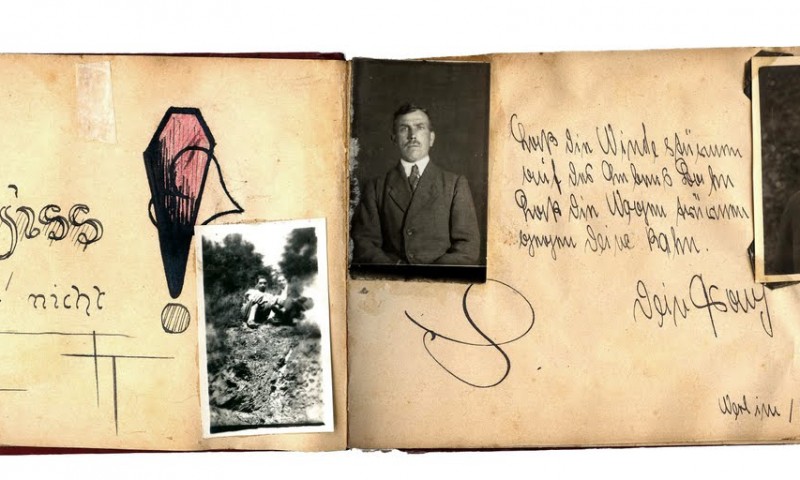 giss
nicht
Laß die Winde stürmen
auf des Lebens Bahn
Laß die Wogen türmen
gegen deine Kahn.
Dein
Werl im